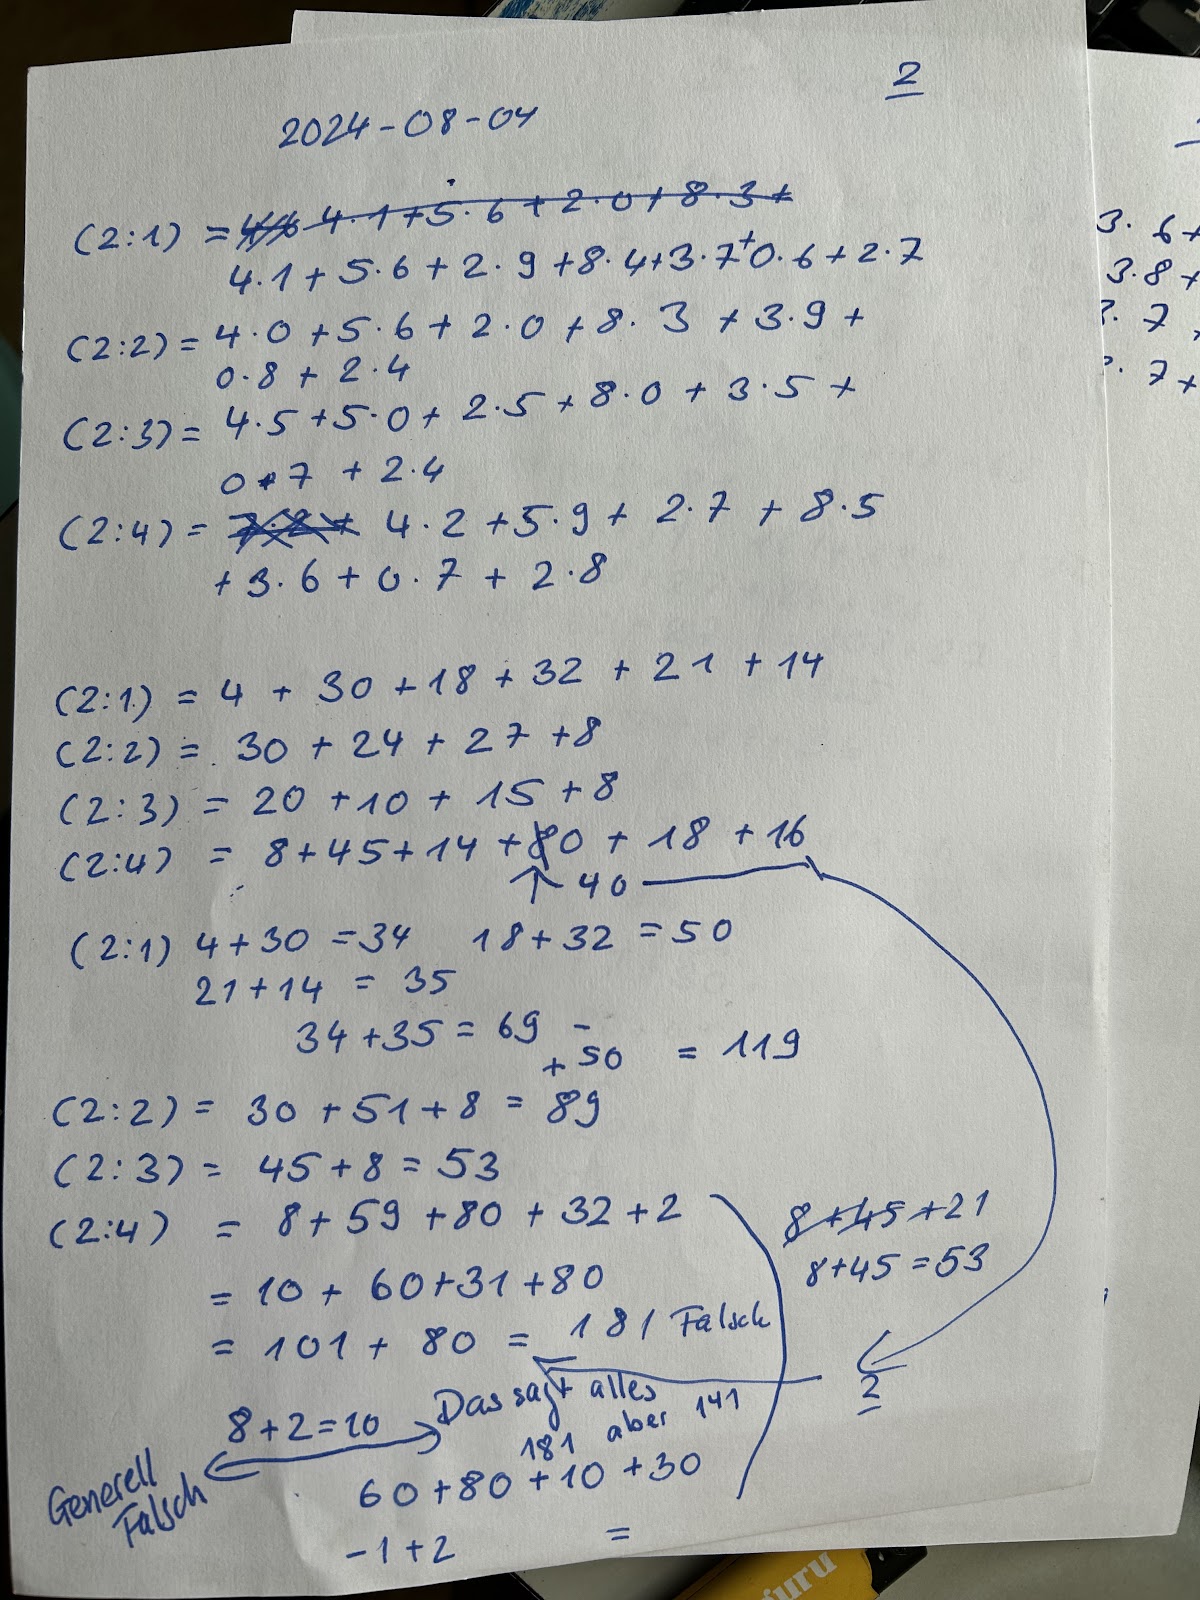 2
2024-08-04
(2:1) = 4·1+5·6+2·0+8·3+
4·1+5·6+2·9+8·4+3·7+0·6+2·7
(2:2) = 4·0+5·6+2·0+8·3+3·9+
0·8+2·4
(2:3) = 4·5+5·0+2·5+8·0+3·5+
0·7+2·4
(2:4) = 4·2+5·9+2·7+8·5
+3·6+0·7+2·8
(2:1) = 4+30+18+32+21+14
(2:2) = 30+24+27+8
(2:3) = 20+10+15+8
(2:4) = 8+45+14+80+18+16
40
(2:1) 4+30=34 18+32=50
21+14=35
34+35=69
+50 = 119
(2:2) = 30+51+8=89
(2:3) = 45+8=53
(2:4) = 8+59+80+32+2
8+45+21
8+45=53
= 10+60+31+80
= 101+80 = 181 Falsch
2
Das sagt alles
181 aber 141
8+2=10
Generell
Falsch
60+80+10+30
-1+2 =
3·6+
3·8+
7
7+
furu